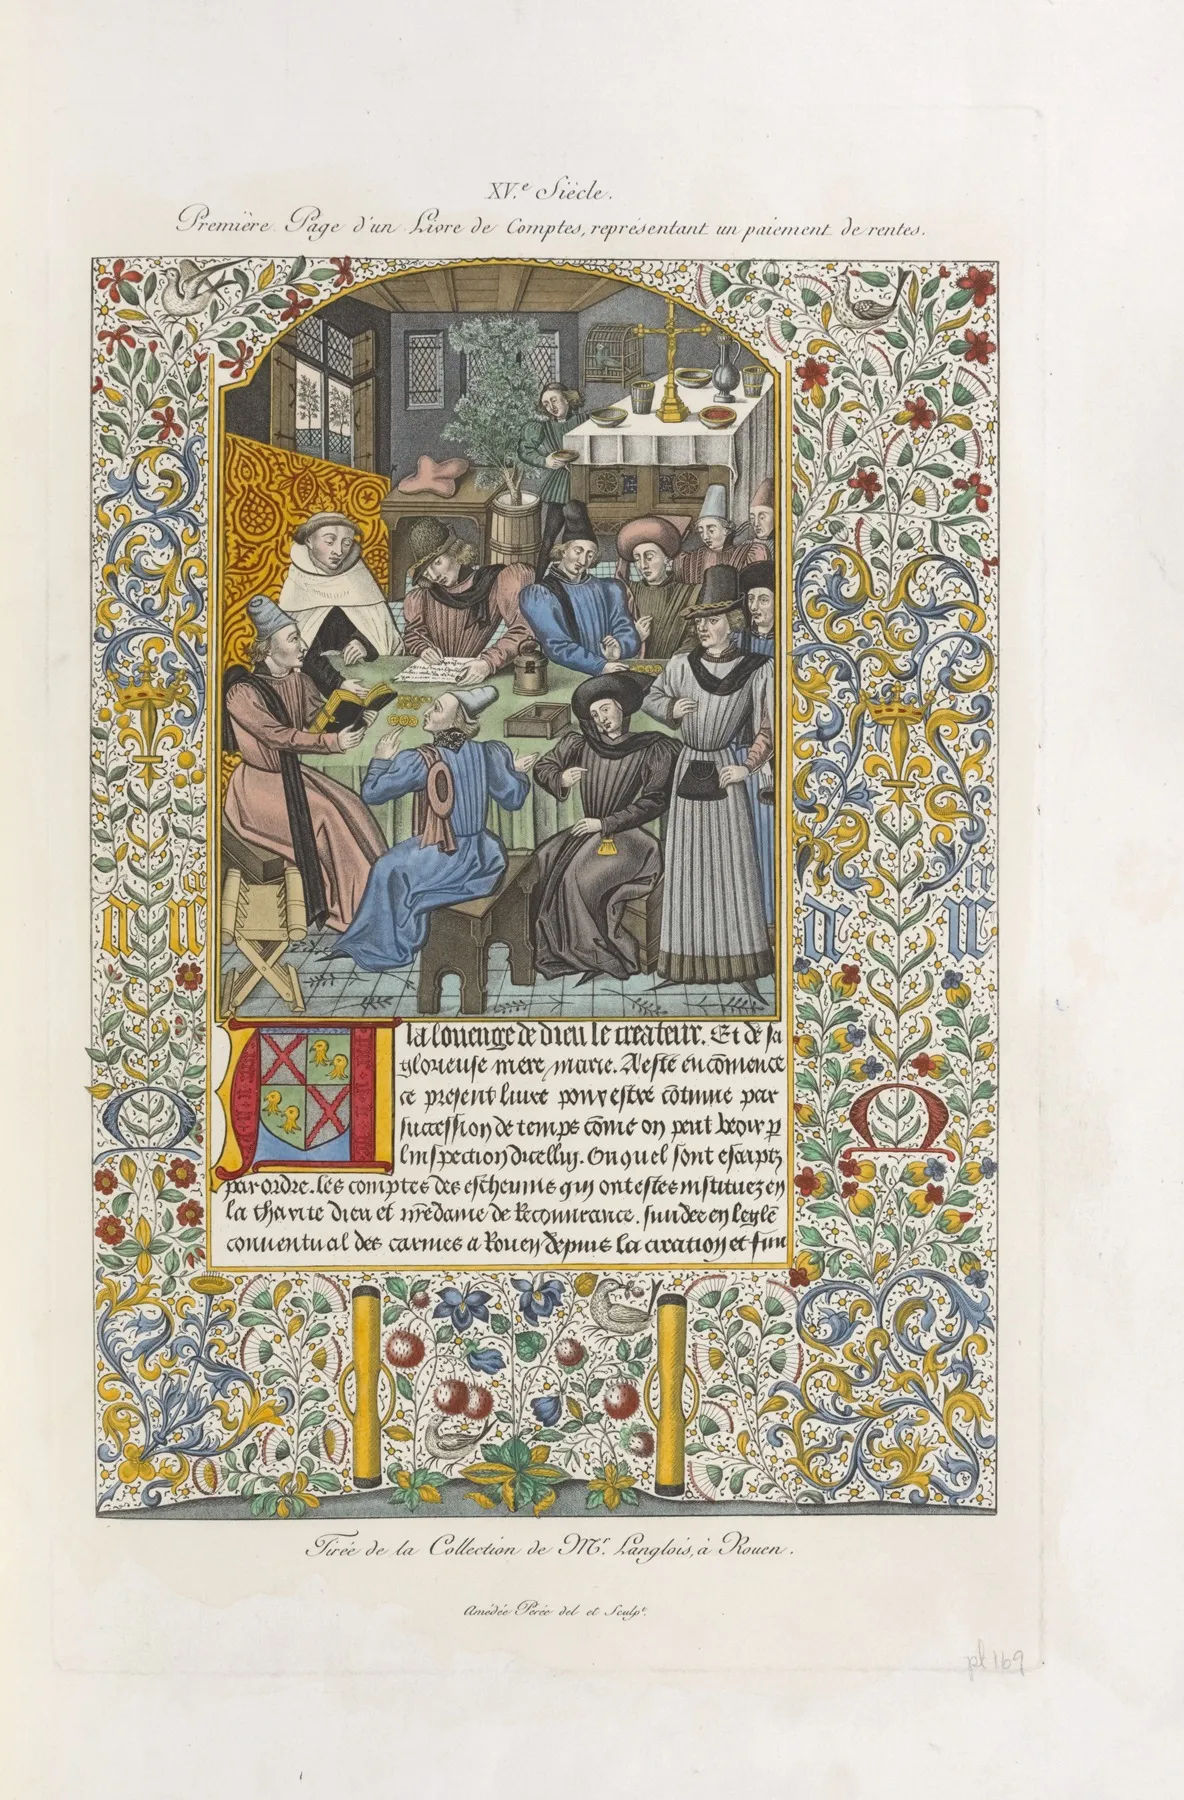 XV.e Siècle.
Première Page d'un Livre de Comptes, représentant un paiement de rentes.
A la louenge de dieu le createur. Et de sa
glorieuse mere marie. A este encōmence
ce present liure pour estre cōtinue par
succession de temps cōme on peut veoir p
linspection dicelluy. Ouquel sont escriptz
par ordre. les comptes des escheuins qui ont estes instituez en
la charite dieu et n̄redame de Recouurance. fundee en leglē
conuentual des carmes a Rouen depuis la creation et fun
Tirée de la Collection de Mr. Langlois, à Rouen.
Amédée Pérée del et Sculpt.
pl 169